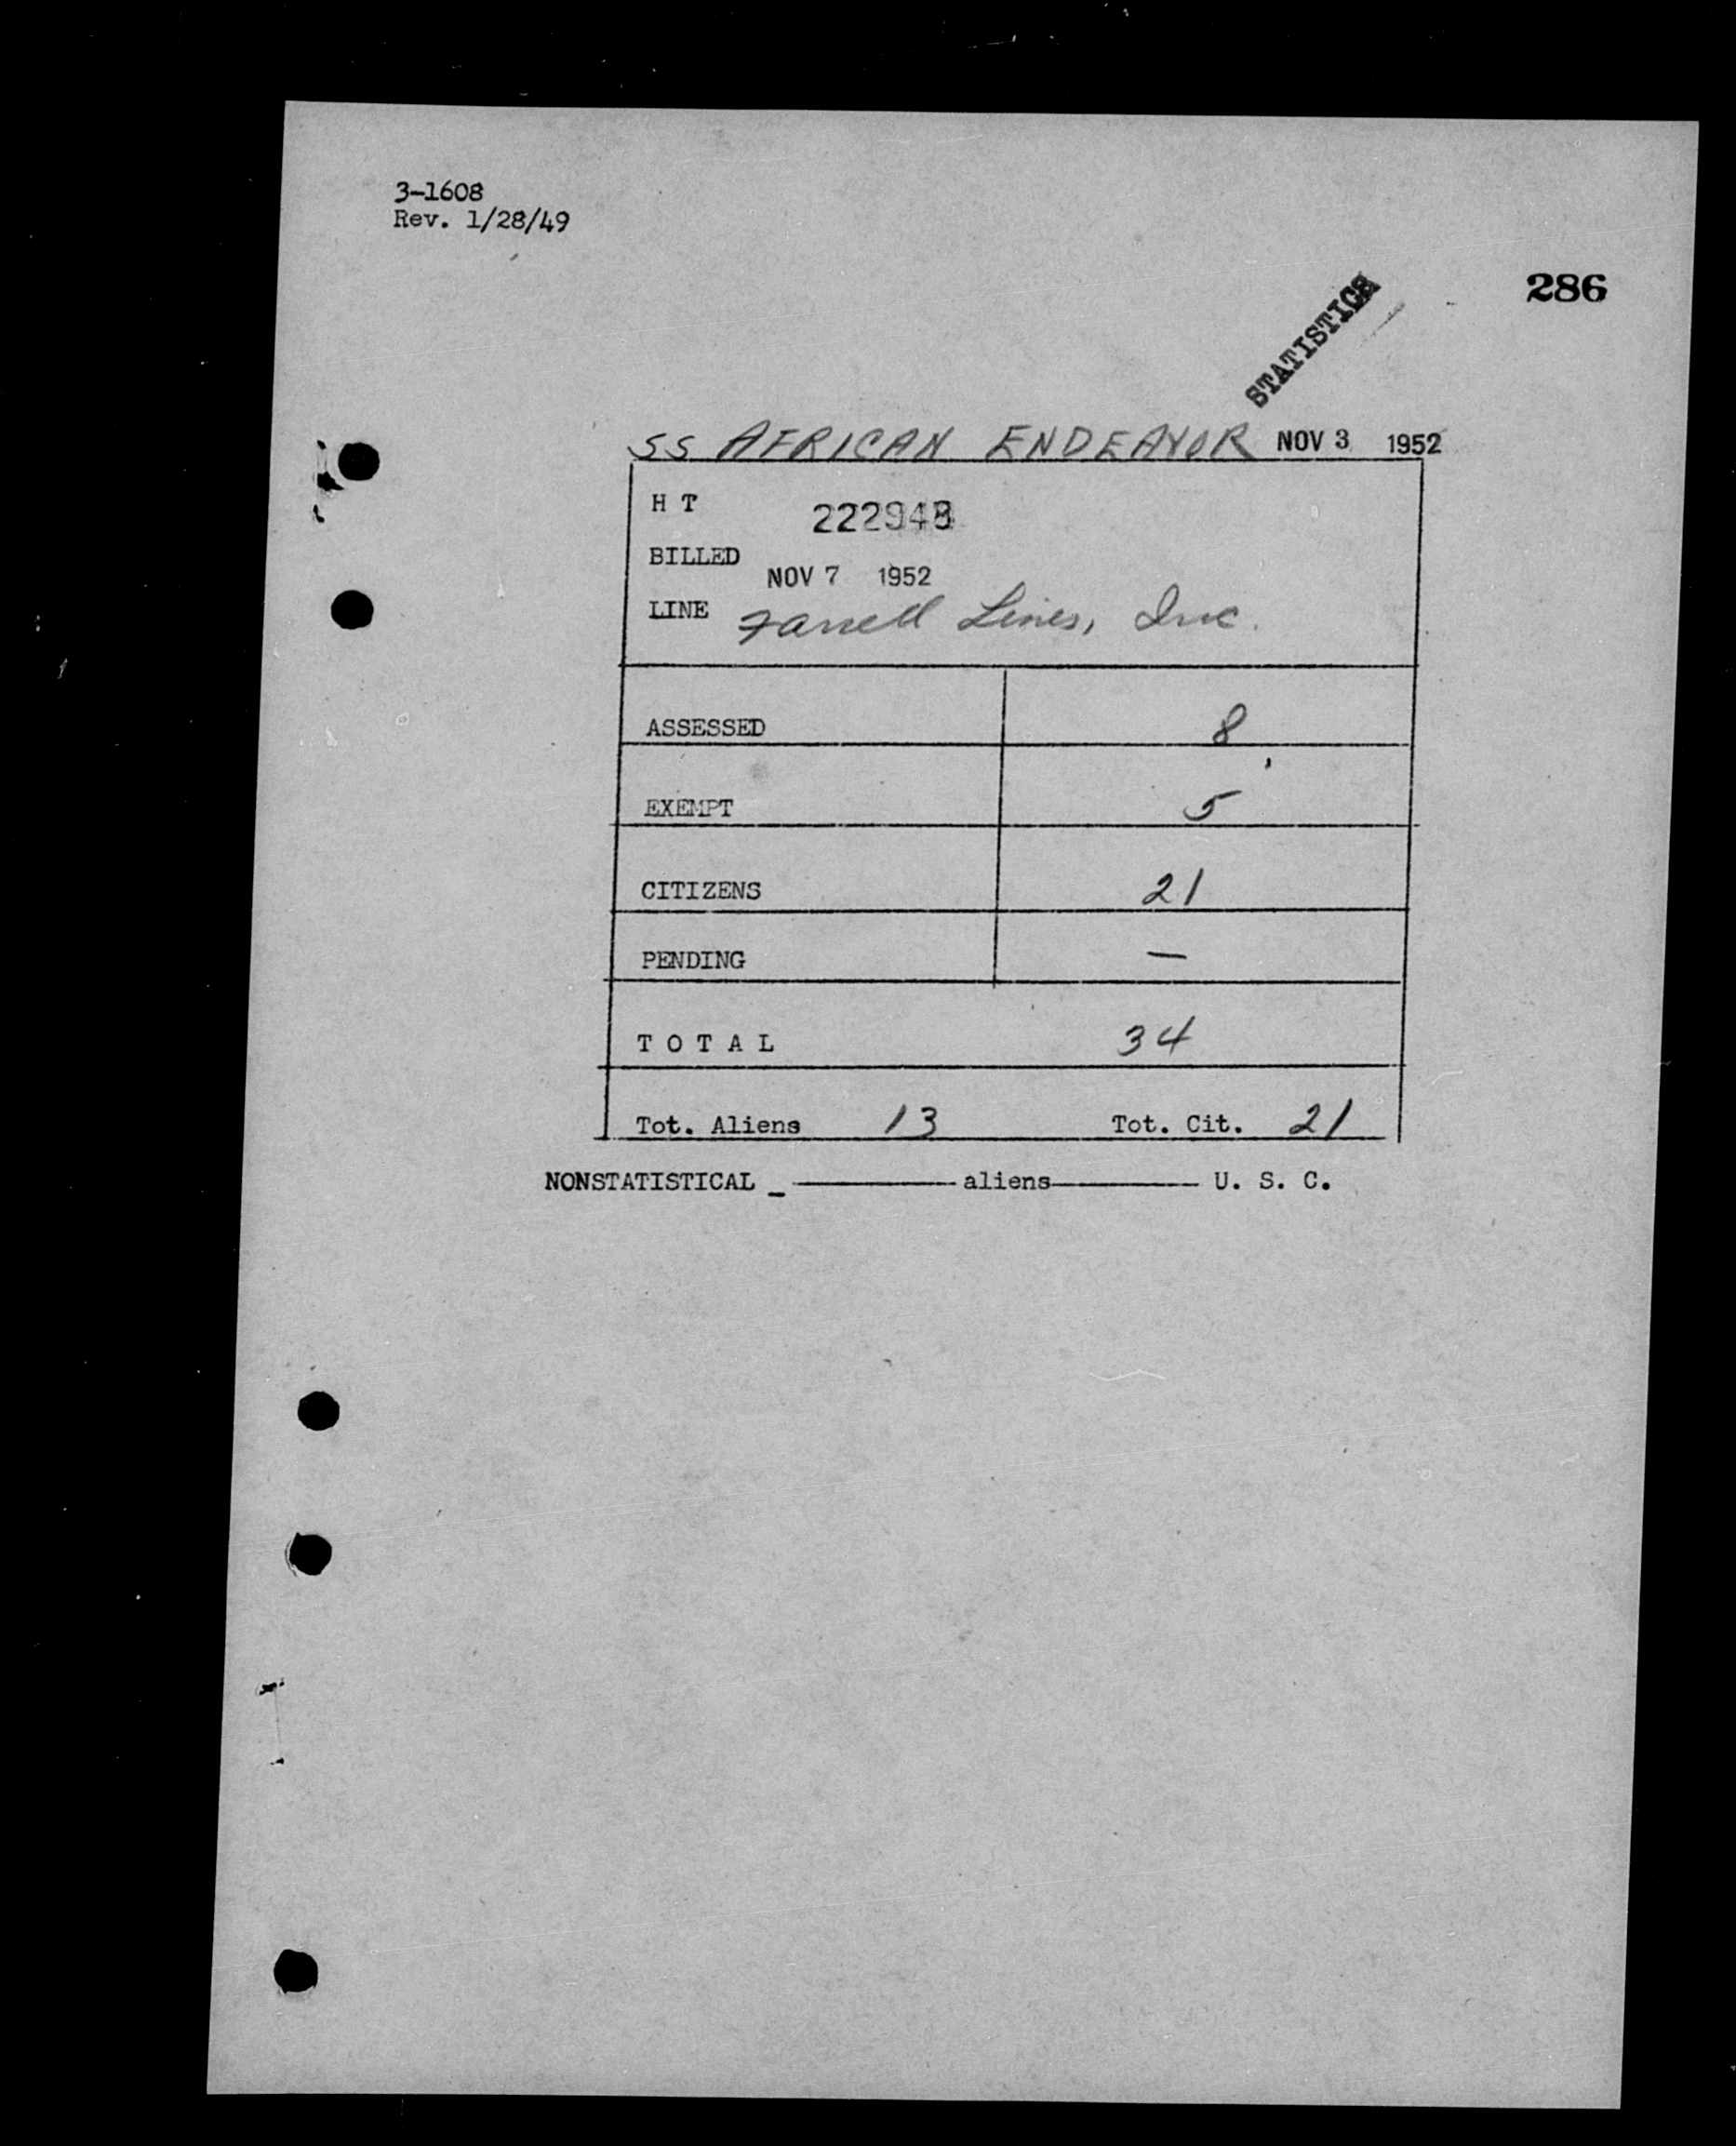 3-1608
Rev. 1/28/49
286
STATISTICS
SS AFRICAN ENDEAVOR NOV 3 1952
H T
BILLED NOV 7 1952
LINE Farrell Lines, Inc.
ASSESSED 8
EXEMPT 5
CITIZENS 21
PENDING —
T O T A L 34
Tot. Aliens 13 Tot. Cit. 21
NONSTATISTICAL _ ———— aliens ———— U. S. C.